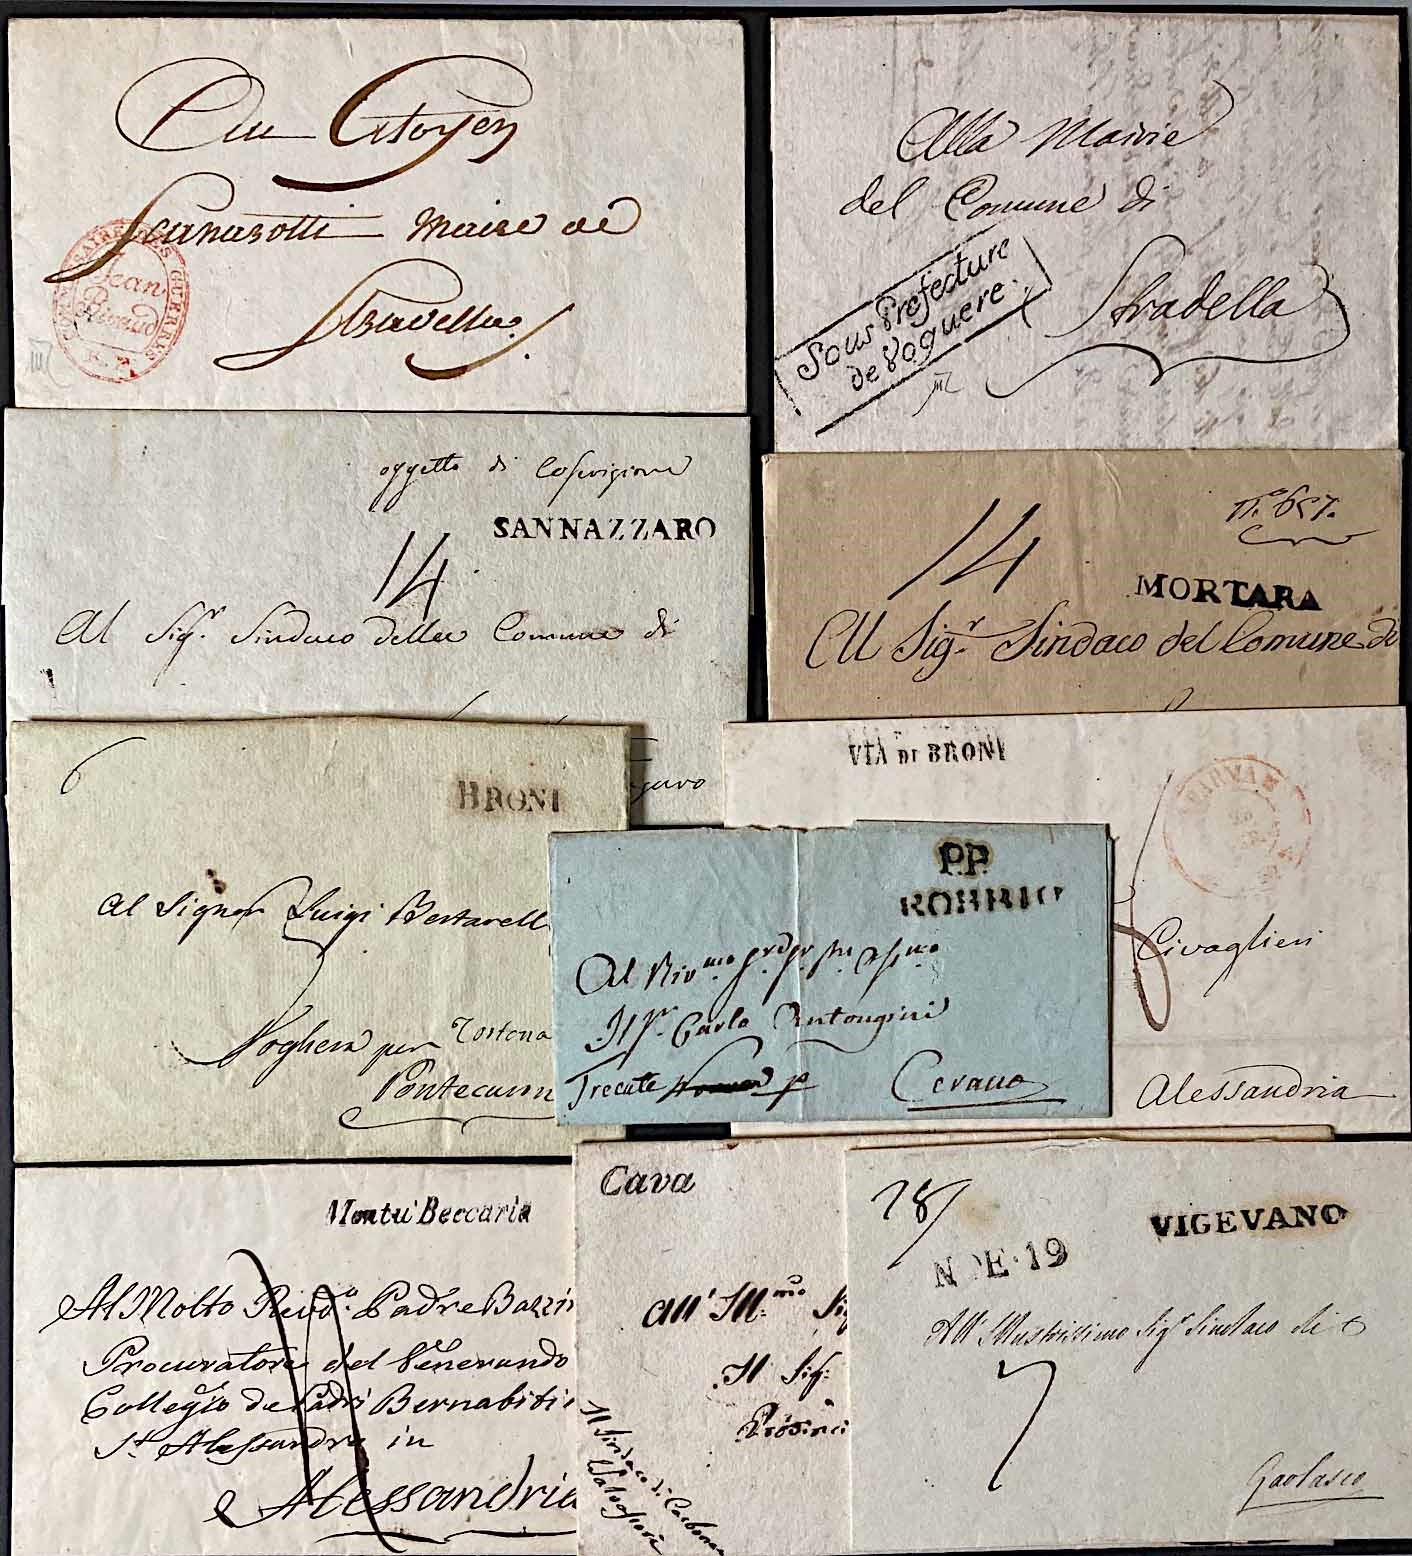 Au Citoyen
Scanarotti Maire de
Stradella
COMMISSAIRE DES GUERRES
Jean
Alla Mairie
del Comune di
Stradella
Sous Prefecture
de Voguere
oggetto di
SANNAZZARO
14
Al Sigr. Sindaco della Comune di
No. 657.
14
MORTARA
All Sigr. Sindaco del Comune di
6
BRONI
Al Signor Luigi Bertarell
Voghera per Tortona
Pontecuron
VIA DI BRONI
Civaglieri
Alessandria
P.P.
ROBBIO
Il Sr. Carlo Antongini
Trecate p Cerano
Montu' Beccaria
Al Molto Revdo. Padre Bazzi
Procuratore del Venerando
Collegio de Padri Bernabiti
St. Alessandro in
Alessandria
Cava
All' Ill:mo Sig
Il Sig:
Provinci
Il Sindaco di Carbonar
78/
VIGEVANO
N DE·19
All' Illustrissimo Sigr. Sindaco di
7
Garlasco